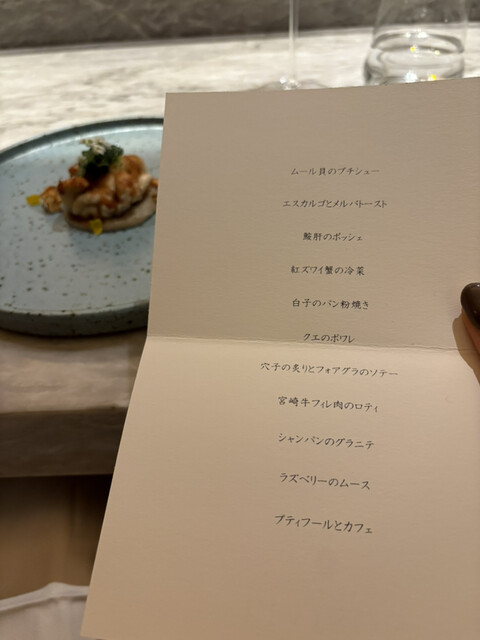 ムール貝のプチシュー
エスカルゴとメルバトースト
鮟肝のポッシェ
紅ズワイ蟹の冷菜
白子のパン粉焼き
クエのポワレ
穴子の炙りとフォアグラのソテー
宮崎牛フィレ肉のロティ
シャンパンのグラニテ
ラズベリーのムース
プティフールとカフェ